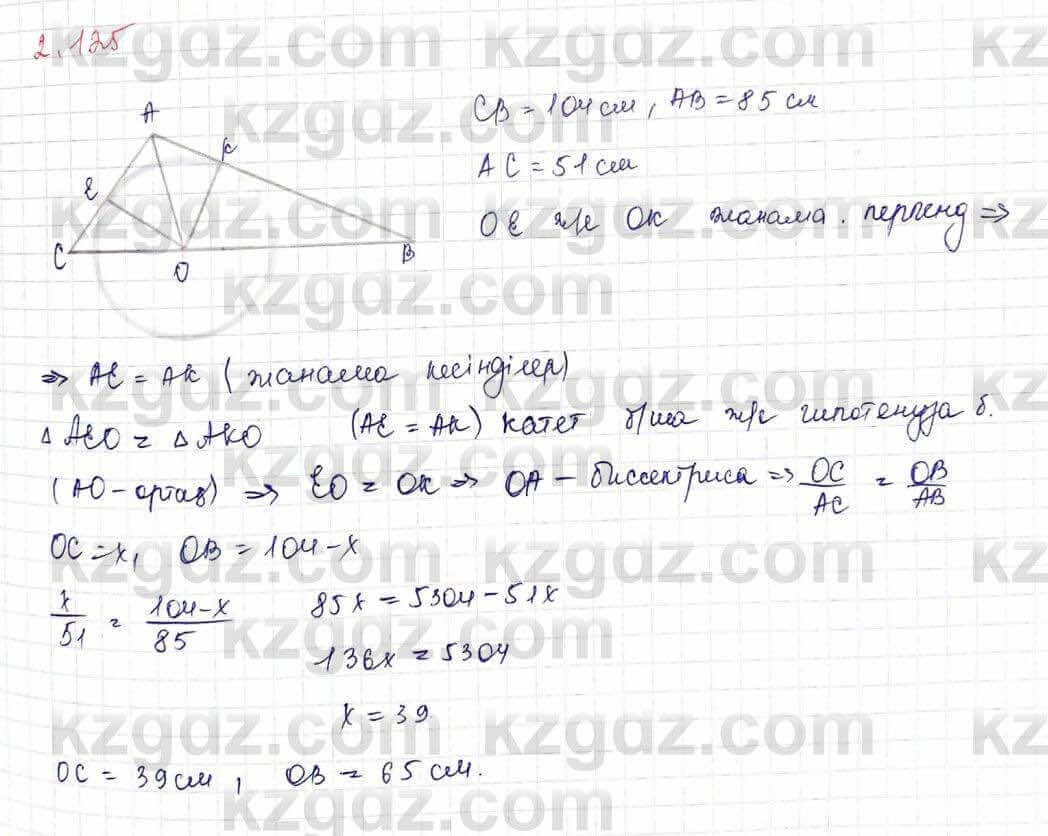 2.125
A
K
E
C
O
B
CB = 104 см, AB = 85 см
AC = 51 см
OE ж/е OK жанама. перпенд =>
=> AE = AK (жанама кесінділер)
△ AEO = △ AKO (AE = AK) катет б/ша ж/е гипотенуза б.
(AO - ортақ) => EO = OK => OA - биссектриса => OC/AC = OB/AB
OC = x, OB = 104 - x
x/51 = 104-x/85 85x = 5304 - 51x
136x = 5304
x = 39
OC = 39 см, OB = 65 см.
kzgdz.com